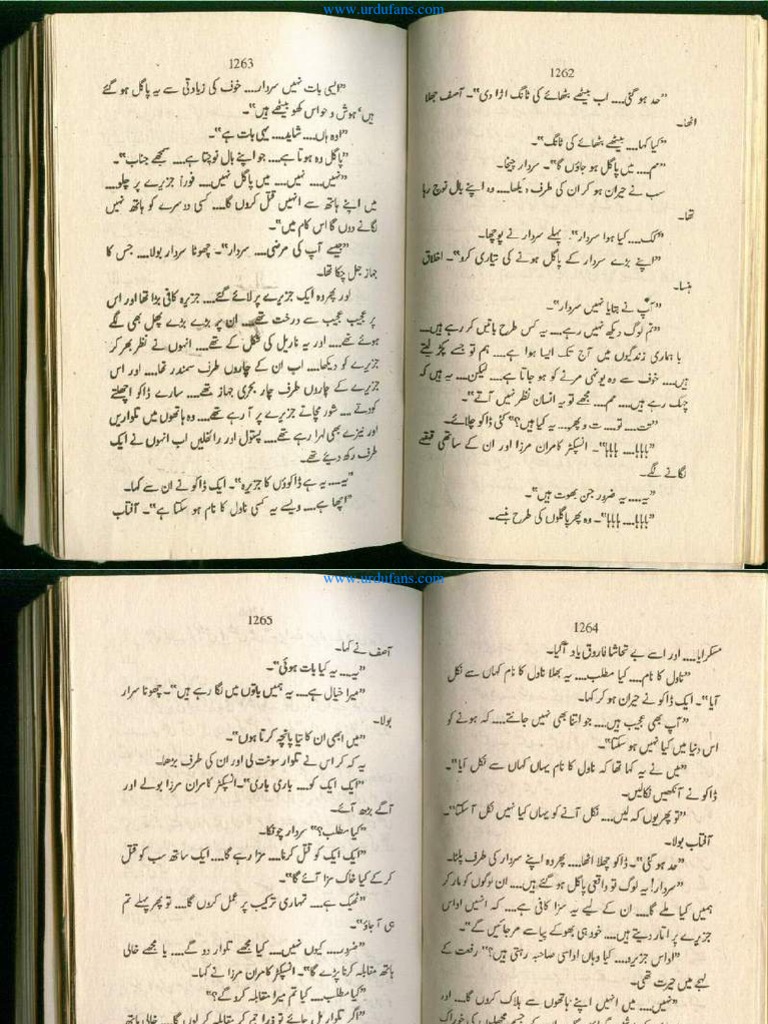 www.urdufans.com
1262
"حد ہو گئی.... اب بیٹھے بٹھائے کی ٹانگ اڑا دی"۔ آصف جھلا
اٹھا۔
"کیا کہا.... بیٹھے بٹھائے کی ٹانگ"۔
"مم.... میں پاگل ہو جاؤں گا"۔ سردار چیخا۔
سب نے حیران ہو کر ان کی طرف دیکھا.... وہ اپنے بال نوچ رہا
تھا۔
"کک.... کیا ہوا سردار"۔ پہلے سردار نے پوچھا۔
"اپنے بڑے سردار کے پاگل ہونے کی تیاری کرو"۔ اخلاق
ہنسا۔
"آپ نے بتایا نہیں سردار"۔
"تم لوگ دیکھ نہیں رہے.... یہ کس طرح باتیں کر رہے ہیں....
ہماری زندگیوں میں آج تک ایسا ہوا ہے.... ہم تو جسے پکڑ لیتے
ہیں.... خوف سے وہ یونہی مرنے کو ہو جاتا ہے.... لیکن.... یہ ہیں کہ
چہک رہے ہیں.... مم.... مجھے تو یہ انسان نظر نہیں آتے"۔
"تت.... تو.... ت و پھر.... یہ کیا ہیں؟" کئی ڈاکو چلائے۔
"ہاہاہا.... ہاہاہا"۔ انسپکٹر کامران مرزا اور ان کے ساتھی قہقہے
لگانے لگے۔
"یہ.... یہ ضرور جن بھوت ہیں"۔
"ہاہاہا.... ہاہاہا"۔ وہ پھر پاگلوں کی طرح ہنسے۔
1263
"ایسی بات نہیں سردار.... خوف کی زیادتی سے یہ پاگل ہو گئے
ہیں' ہوش و حواس کھو بیٹھے ہیں"۔
"اوہ ہاں.... شاید.... یہی بات ہے"۔
"پاگل وہ ہوتا ہے.... جو اپنے بال نوچتا ہے.... سمجھے جناب"۔
"نہیں.... نہیں.... میں پاگل نہیں.... فوراً جزیرے پر چلو....
میں اپنے ہاتھ سے انہیں قتل کروں گا.... کسی دوسرے کو ہاتھ نہیں
لگانے دوں گا اس کام میں"۔
"جیسے آپ کی مرضی.... سردار"۔ چھوٹا سردار بولا.... جس کا
جہاز جل چکا تھا۔
اور پھر وہ ایک جزیرے پر لائے گئے.... جزیرہ کافی بڑا تھا اور اس
پر عجیب عجیب سے درخت تھے.... ان پر بڑے بڑے پھل بھی لگے
ہوئے تھے.... اور یہ ناریل کی شکل کے تھے.... انہوں نے نظر بھر کر
جزیرے کو دیکھا.... اب ان کے چاروں طرف سمندر تھا.... اور اس
جزیرے کے چاروں طرف چار بحری جہاز تھے.... سارے ڈاکو اچھلتے
کودتے.... شور مچاتے جزیرے پر آ رہے تھے.... وہ ہاتھوں میں تلواریں
اور نیزے بھی لہرا رہے تھے.... پستول اور رائفلیں اب انہوں نے ایک
طرف رکھ دیئے تھے۔
"یہ.... یہ ہے ڈاکوؤں کا جزیرہ"۔ ایک ڈاکو نے ان سے کہا۔
"اچھا ہے.... ویسے یہ کسی ناول کا نام ہو سکتا ہے"۔ آفتاب
www.urdufans.com
1264
مسکرایا.... اور اسے بے تحاشا فاروق یاد آگیا۔
"ناول کا نام.... کیا مطلب.... یہ بھلا ناول کا نام کہاں سے نکل
آیا"۔ ایک ڈاکو نے حیران ہو کر کہا۔
"آپ بھی عجیب ہیں.... جو اتنا بھی نہیں جانتے.... کہ ہونے کو
اس دنیا میں کیا نہیں ہو سکتا"۔
"میں نے یہ کہا تھا کہ ناول کا نام یہاں کہاں سے نکل گیا"۔
ڈاکو نے آنکھیں نکالیں۔
"تو پھر یوں کہ لیں.... نکل آنے کو یہاں کیا نہیں نکل آ سکتا"۔
آفتاب بولا۔
"حد ہو گئی"۔ ڈاکو جھلا اٹھا.... پھر وہ اپنے سردار کی طرف پلٹا۔
"سردار! یہ لوگ تو واقعی پاگل ہو گئے ہیں.... ان لوگوں کو مار کر
ہمیں کیا ملے گا.... ان کے لیے یہ سزا کافی ہے.... کہ انہیں اداس
جزیرے پر اتار دیتے ہیں.... خود ہی بھوکے پیاسے مرجائیں گے"۔
"اداس جزیرہ.... کیا وہاں اداسی صاحبہ رہتی ہیں؟" رفعت کے
لہجے میں حیرت تھی۔
"نہیں.... میں انہیں اپنے ہاتھوں سے ہلاک کروں گا.... اور
کے جسم مچھلیوں کی خوراک
1265
آصف نے کہا۔
"یہ.... یہ کیا بات ہوئی"۔
"میرا خیال ہے.... یہ ہمیں باتوں میں لگا رہے ہیں"۔ چھوٹا سردار
بولا۔
"میں ابھی ان کا تیا پانچہ کرتا ہوں"۔
یہ کہ کر اس نے تلوار سونت لی اور ان کی طرف بڑھا۔
"ایک ایک کو.... باری باری"۔ انسپکٹر کامران مرزا بولے اور
آگے بڑھ آئے۔
"کیا مطلب؟" سردار چونکا۔
"ایک ایک کو قتل کرنا.... مزا رہے گا.... ایک ساتھ سب کو قتل
کر کے کیا خاک مزا آئے گا"۔
"ٹھیک ہے.... تمہاری ترکیب پر عمل کروں گا.... تو پھر پہلے تم
ہی آ جاؤ"۔
"ضرور.... کیوں نہیں.... کیا مجھے تلوار دو گے.... یا مجھے خالی
ہاتھ مقابلہ کرنا پڑے گا"۔ انسپکٹر کامران مرزا نے کہا۔
"کیا مطلب.... کیا تم میرا مقابلہ کرو گے؟"
"اگر تلوار مل جائے تو ذرا جم کر مقابلہ کر لوں گا.... خالی ہاتھ